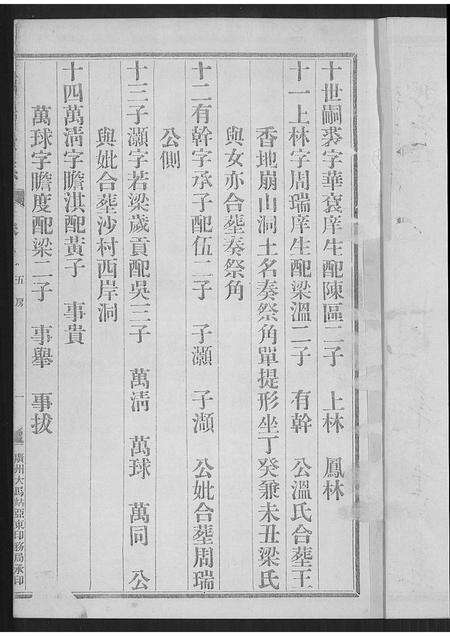 十世嗣裘字華袞庠生配陳區二子 上林 鳳林
十一上林字周瑞庠生配梁溫二子 有幹 公溫氏合塟王
香地崩山洞土名奏祭角單提形坐丁癸兼未丑梁氏
與女亦合塟奏祭角
十二有幹字承子配伍二子 子灝 子灏 公妣合塟周瑞
公側
十三子灝字若梁歲貢配吳三子 萬淸 萬球 萬同 公
與妣合塟沙村西岸洞
十四萬淸字瞻淇配黃子 事貴
萬球字瞻度配梁二子 事舉 事拔
五房
廣州大馬站亞東印務局承印